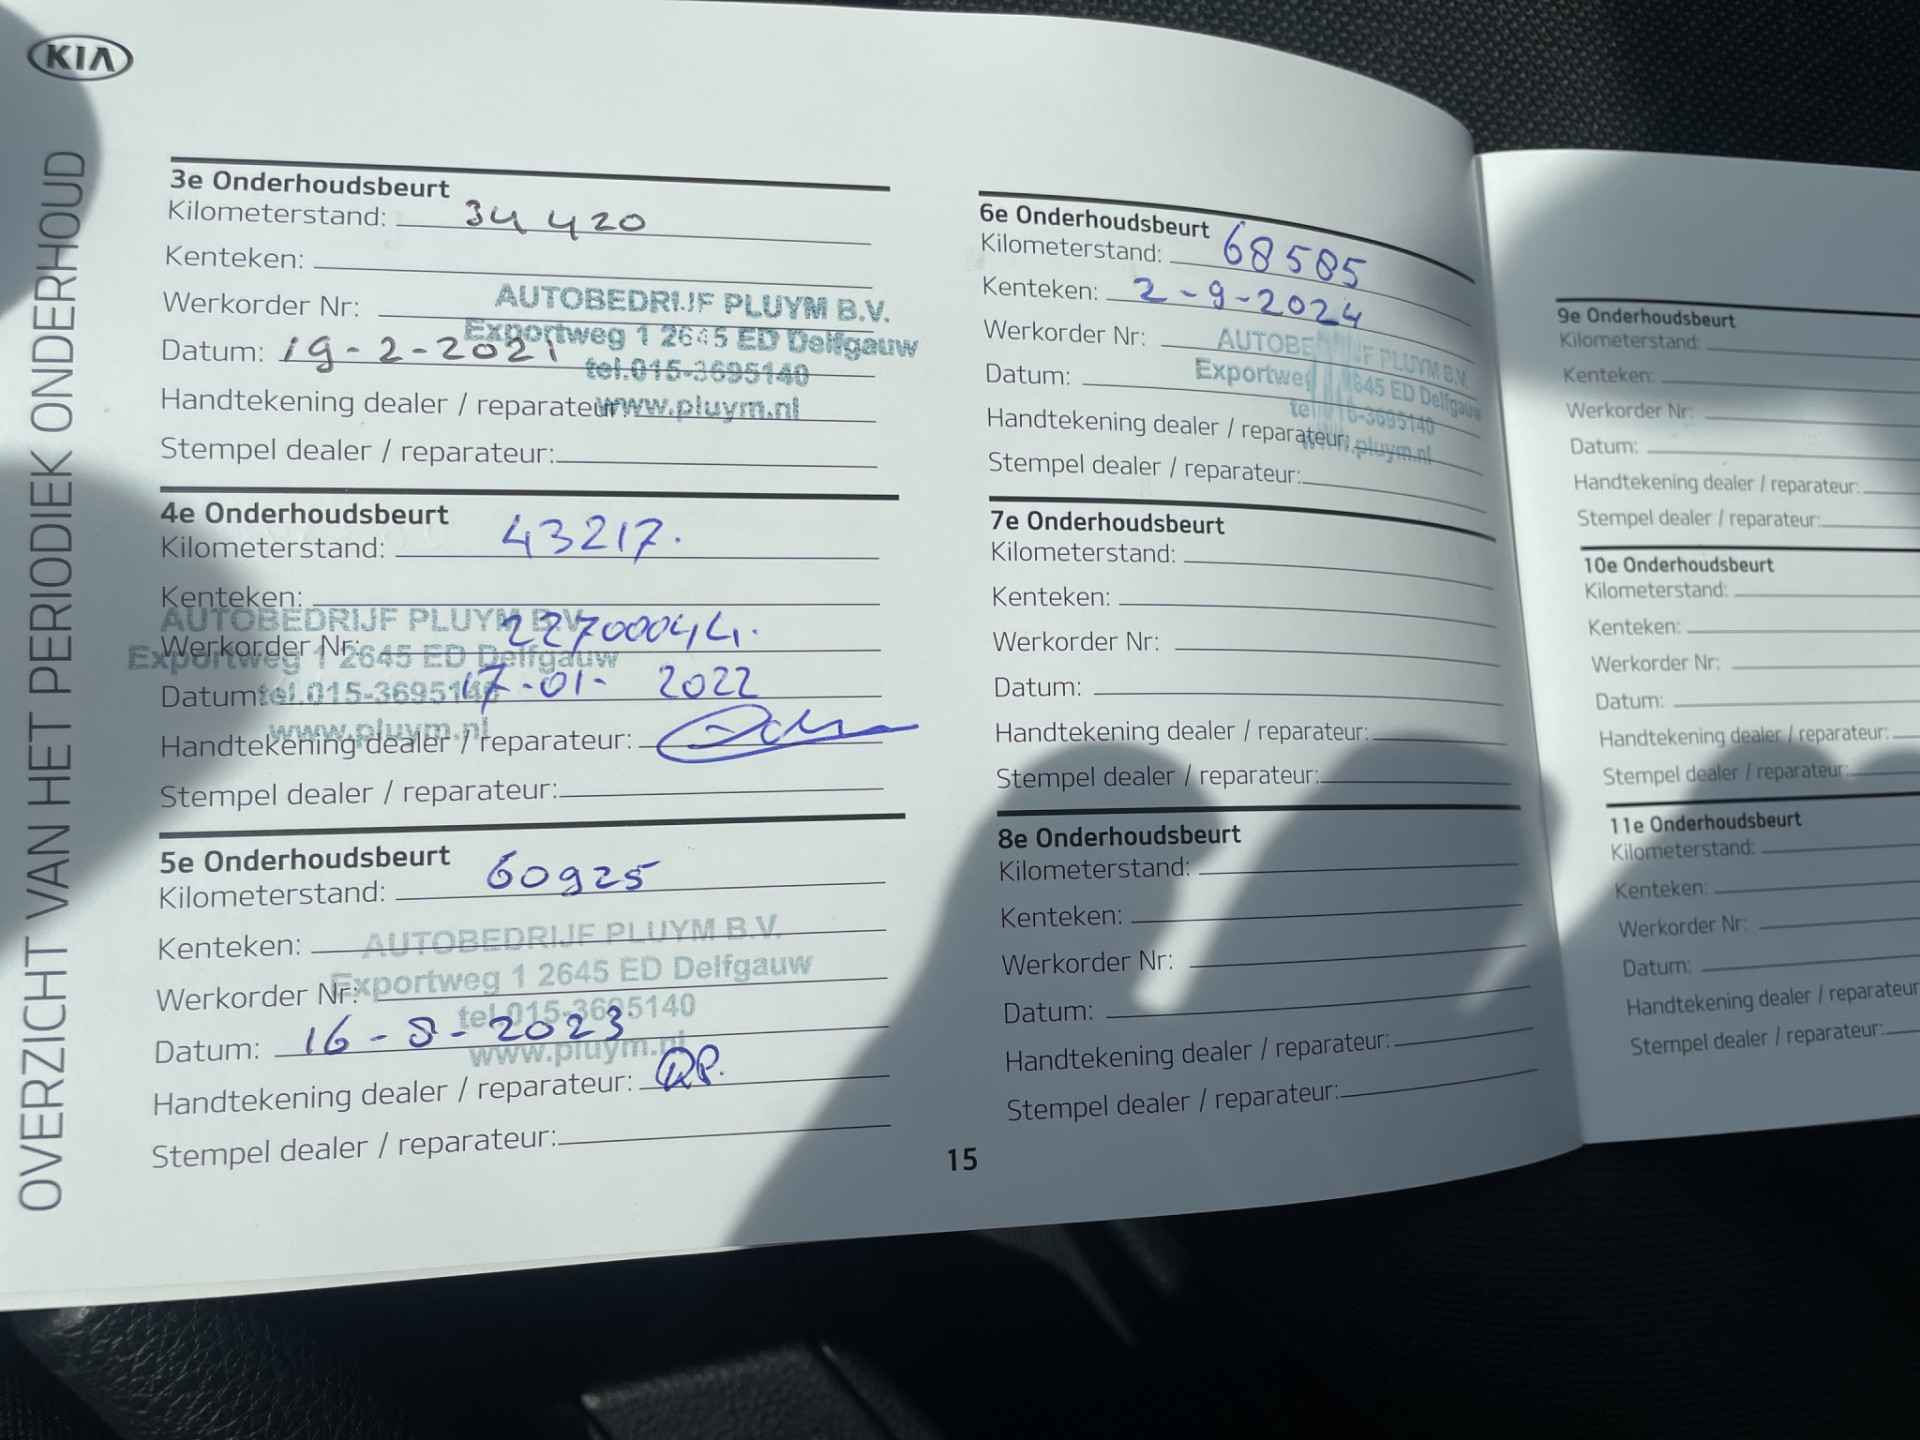 KIA
OVERZICHT VAN HET PERIODIEK ONDERHOUD
3e Onderhoudsbeurt
Kilometerstand: 34 420
Kenteken:
Werkorder Nr:
Datum: 19-2-2021
Handtekening dealer / reparateur:
Stempel dealer / reparateur:
AUTOBEDRIJF PLUYM B.V.
Exportweg 1 2645 ED Delfgauw
tel.015-3695140
www.pluym.nl
4e Onderhoudsbeurt
Kilometerstand: 43217.
Kenteken:
Werkorder Nr: 22700044.
Datum: 17-01- 2022
Handtekening dealer / reparateur:
Stempel dealer / reparateur:
AUTOBEDRIJF PLUYM B.V.
Exportweg 1 2645 ED Delfgauw
tel.015-3695140
www.pluym.nl
5e Onderhoudsbeurt
Kilometerstand: 60925
Kenteken:
Werkorder Nr:
Datum: 16-8-2023
Handtekening dealer / reparateur:
Stempel dealer / reparateur:
AUTOBEDRIJF PLUYM B.V.
Exportweg 1 2645 ED Delfgauw
tel.015-3695140
www.pluym.nl
6e Onderhoudsbeurt
Kilometerstand: 68585
Kenteken: 2-9-2024
Werkorder Nr:
Datum:
Handtekening dealer / reparateur:
Stempel dealer / reparateur:
AUTOBEDRIJF PLUYM B.V.
Exportweg 1 2645 ED Delfgauw
tel.015-3695140
www.pluym.nl
7e Onderhoudsbeurt
Kilometerstand:
Kenteken:
Werkorder Nr:
Datum:
Handtekening dealer / reparateur:
Stempel dealer / reparateur:
8e Onderhoudsbeurt
Kilometerstand:
Kenteken:
Werkorder Nr:
Datum:
Handtekening dealer / reparateur:
Stempel dealer / reparateur:
15
9e Onderhoudsbeurt
Kilometerstand:
Kenteken:
Werkorder Nr:
Datum:
Handtekening dealer / reparateur:
Stempel dealer / reparateur:
10e Onderhoudsbeurt
Kilometerstand:
Kenteken:
Werkorder Nr:
Datum:
Handtekening dealer / reparateur:
Stempel dealer / reparateur:
11e Onderhoudsbeurt
Kilometerstand:
Kenteken:
Werkorder Nr:
Datum:
Handtekening dealer / reparateur
Stempel dealer / reparateur: